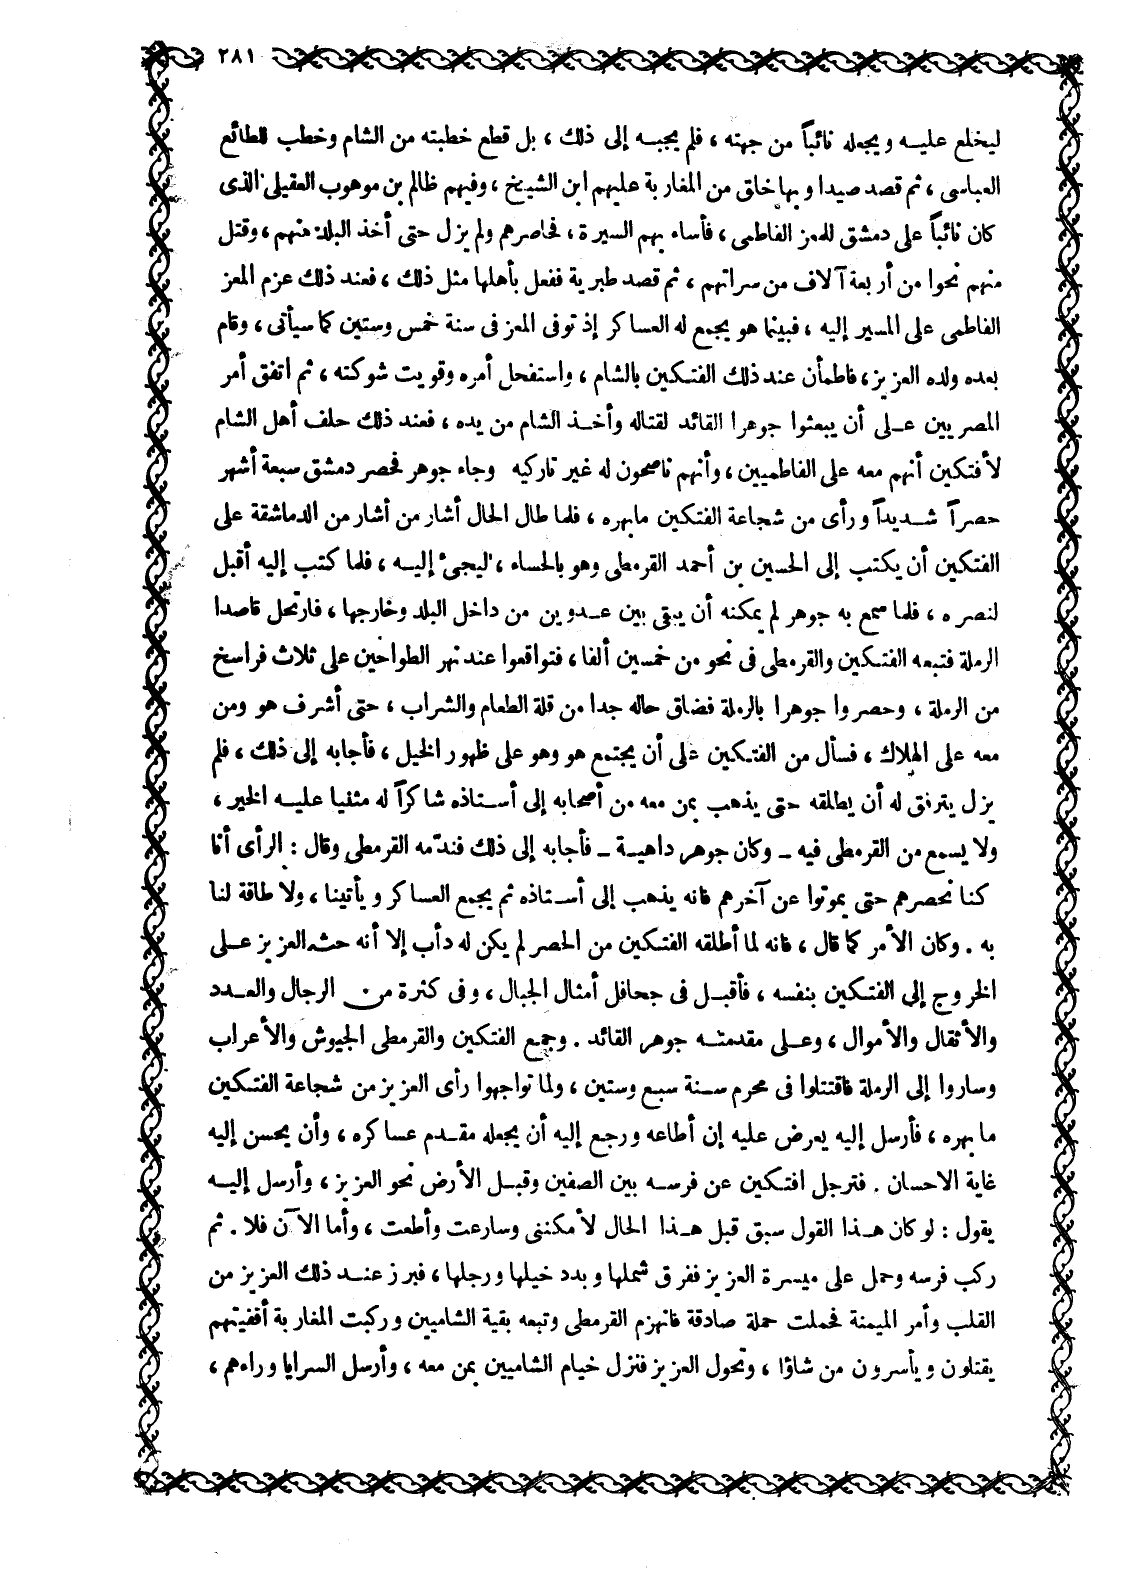 ٢٨١
ليخلع عليه ويجعله نائباً من جهته ، فلم يجبه إلى ذلك ، بل قطع خطبته من الشام وخطب للطائع
العباسى ، ثم قصد صيدا وبها خلق من المغاربة عليهم ابن الشيخ ، وفيهم ظالم بن موهوب العقيلى الذى
كان نائباً على دمشق للمعز الفاطمى ، فأساء بهم السيرة ، فحاصرهم ولم يزل حتى أخذ البلد منهم ، وقتل
منهم نحوا من أربعة آلاف من سراتهم ، ثم قصد طبرية ففعل بأهلها مثل ذلك ، فعند ذلك عزم المعز
الفاطمى على المسير إليه ، فبينما هو يجمع له العساكر إذ توفى المعز فى سنة خمس وستين كما سيأتى ، وقام
بعده ولده العزيز ، فاطمأن عند ذلك الفتكين بالشام ، واستفحل أمره وقويت شوكته ، ثم اتفق أمر
المصريين على أن يبعثوا جوهرا القائد لقتاله وأخذ الشام من يده ، فعند ذلك حلف أهل الشام
لأفتكين أنهم معه على الفاطميين ، وأنهم ناصحون له غير تاركيه وجاء جوهر فحصر دمشق سبعة أشهر
حصراً شديداً ورأى من شجاعة الفتكين مابهره ، فلما طال الحال أشار من أشار من الدماشقة على
الفتكين أن يكتب إلى الحسين بن أحمد القرمطى وهو بالحساء ، ليجئ إليه ، فلما كتب إليه أقبل
لنصره ، فلما سمع به جوهر لم يمكنه أن يبقى بين عدوين من داخل البلد وخارجها ، فارتحل قاصدا
الرملة فتبعه الفتكين والقرمطى فى نحو من خمسين ألفا ، فتواقعوا عند نهر الطواحين على ثلاث فراسخ
من الرملة ، وحصروا جوهرا بالرملة فضاق حاله جدا من قلة الطعام والشراب ، حتى أشرف هو ومن
معه على الهلاك ، فسأل من الفتكين على أن يجتمع هو وهو على ظهور الخيل ، فأجابه إلى ذلك ، فلم
يزل يترفق له أن يطلقه حتى يذهب بمن معه من أصحابه إلى أستاذه شاكراً له مثنيا عليه الخير ،
ولا يسمع من القرمطى فيه ـ وكان جوهر داهية ـ فأجابه إلى ذلك فندّمه القرمطى وقال : الرأى أنا
كنا نحصرهم حتى يموتوا عن آخرهم فانه يذهب إلى أستاذه ثم يجمع العساكر ويأتينا ، ولا طاقة لنا
به . وكان الأمر كما قال ، فانه لما أطلقه الفتكين من الحصر لم يكن له دأب إلا أنه حث العزيز على
الخروج إلى الفتكين بنفسه ، فأقبل فى جحافل أمثال الجبال ، وفى كثرة من الرجال والعدد
والأثقال والأموال ، وعلى مقدمته جوهر القائد . وجمع الفتكين والقرمطى الجيوش والأعراب
وساروا إلى الرملة فاقتتلوا فى محرم سنة سبع وستين ، ولما تواجهوا رأى العزيز من شجاعة الفتكين
مابهره ، فأرسل إليه يعرض عليه إن أطاعه ورجع إليه أن يجعله مقدم عساكره ، وأن يحسن إليه
غاية الاحسان . فترجل افتكين عن فرسه بين الصفين وقبل الأرض نحو العزيز ، وأرسل إليه
يقول : لو كان هذا القول سبق قبل هذا الحال لأمكننى وسارعت وأطعت ، وأما الآن فلا . ثم
ركب فرسه وحمل على ميسرة العزيز ففرق شملها وبدد خيلها ورجلها ، فبرز عند ذلك العزيز من
القلب وأمر الميمنة فحملت حملة صادقة فانهزم القرمطى وتبعه بقية الشاميين وركبت المغاربة أقفيتهم
يقتلون ويأسرون من شاؤا ، وتحول العزيز فنزل خيام الشاميين بمن معه ، وأرسل السرايا وراءهم ،